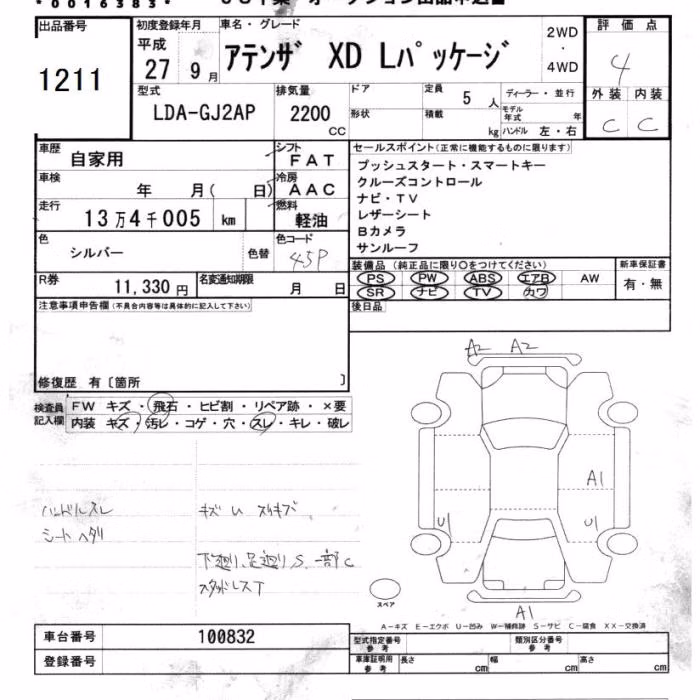 *0016383*
出品番号
1211
初度登録年月
平成
27 9月
車名・グレード
アテンザ XD Lパッケージ
2WD
・
4WD
評価点
4
外装 内装
C C
型式
LDA-GJ2AP
排気量
2200
CC
ドア
形状
定員
5人
積載
kg
ディーラー・並行
モデル年式 年
ハンドル 左・右
車歴
自家用
シフト
FAT
車検
年 月( 日)
冷房
AAC
走行
13万4千005 km
燃料
軽油
色
シルバー
色替
色コード
45P
R券
11,330円
名変通知期限
月 日
セールスポイント(正常に機能するものに限ります)
プッシュスタート・スマートキー
クルーズコントロール
ナビ・TV
レザーシート
Bカメラ
サンルーフ
装備品(純正品に限り○をつけてください)
PS PW ABS エアB AW
SR ナビ TV カワ
新車保証書
有・無
後日品
注意事項申告欄(不具合内容等は具体的に記入して下さい)
修復歴 有〔箇所 〕
検査員記入欄
FW キズ・飛石・ヒビ割・リペア跡・×要
内装 キズ・汚レ・コゲ・穴・スレ・キレ・破レ
ハンドルスレ
シートヘタリ
キズ U スリキズ
下廻り、足廻り S、一部C
スタッドレスT
A2 A2
A1
U1
U1
A1
スペア
A-キズ E-エクボ U-凹み W-補修跡 S-サビ C-腐食 XX-交換済
車台番号
100832
登録番号
型式指定番号
参考
類別区分番号
参考
車庫証明用
参考
長さ cm
幅 cm
高さ cm